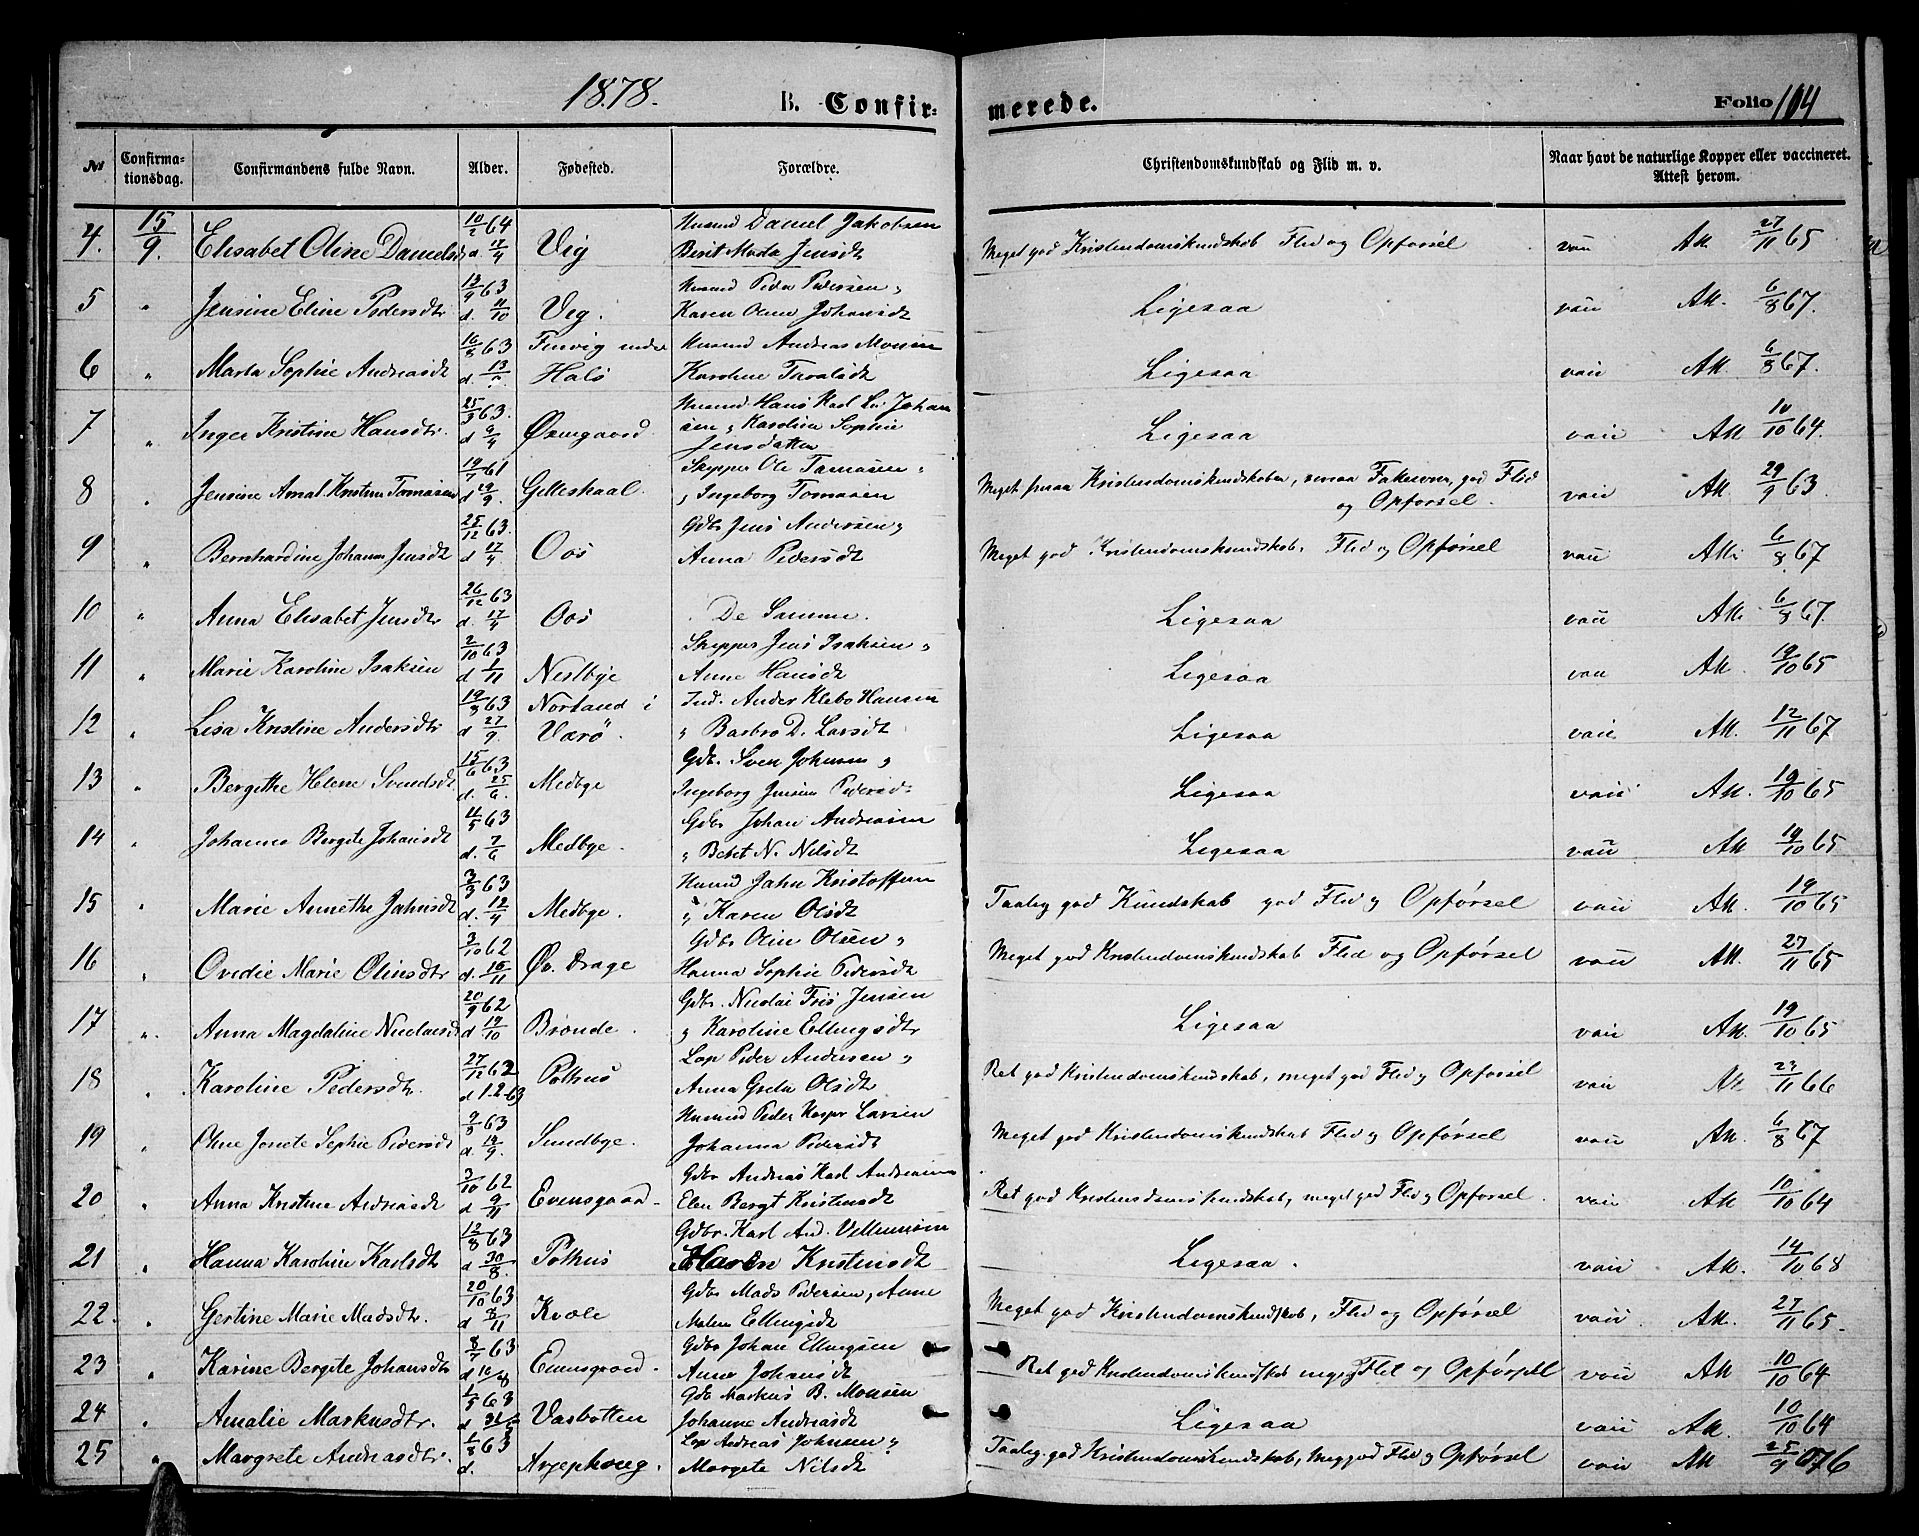 1878.
B. Confir-
merede.
Folio 104
No
Confirma-
tionsdag.
Confirmandens fulde Navn.
Alder.
Fødested.
Forældre.
Christendomskundskab og Flid m. v.
Naar havt de naturlige Kopper eller vaccineret.
Attest herom.
4. 15/9. Elisabet Oline Danielsd 10/2 64 d. 17/4 Vig Husmd Daniel Jakobsen
Berit Marta Jensdt Meget god Kristendomskundskab Flid og Opførsel vaii Ak 27/11 65
5 " Jensine Eline Pedersdtr 13/9 63 d. 11/10 Vig. Husmd Peder Pedersen "
Karen Oline Johansdt Ligesaa vaii Ak. 6/8 67.
6 " Marta Sophie Andreasdt 16/8 63 d. 13/ Finvig under
Hals Husmd Andreas Monsen
Karoline Taralsdt Ligesaa vaii Ak. 6/8 67.
7 " Inger Kristine Hansdtr. 25/3 63. d 9/4 Øxengaard. Husmd Hans Karl Johan
sen " Karoline Sophie
Jensdatter Ligesaa vaii Ak 10/10 64.
8 " Jensine Amal. Kristine Tomasen 19/7 61 d 29/9. Gilleskaal. Skipper Ole Tomasen "
" Ingeborg Tomasen Meget Kristendomskundskaber, god Flid
og Opførsel. vaii Ak 29/9 63.
9 " Bernhardine Johanna Jensdt 25/12 63. d 17/4. Oos Gdbr Jens Andersen "
Anna Pedersdt Meget god Kristendomskundskab, Flid og Opførsel vaii Ak. 6/8 67
10 " Anna Elisabet Jensdtr 26/12 63 d. 17/4 Oos De Samme. Ligesaa vaii Ak. 6/8 67.
11 " Marie Karoline Isaksen 2/10 63 d 1/11 Nestbye Skipper Jens Isaksen "
Anne Hansdt Ligesaa vaii Ak 19/10 65
12 " Lisa Kristine Andersdtr 19/8 63 d 27/9. Norland i
Værö. Ind. Ander Klebo Hansen
" Barbro D. Larsdt Ligesaa vaii Ak. 12/11 67
13 " Bergithe Helene Svendsdt 15/6 63 d. 25/6. Medbye Gdb. Sven Johnsen "
Ingeborg Jensine Pedersdt Ligesaa vaii Ak. 19/10 65
14 " Johanna Bergete Johansdt 4/5 63 d. 7/6 Medbye. Gdbr Johan Andreasen
" Beret N. Nilsdt Ligesaa vaii Ak 19/10 65
15 " Marie Annethe Jahnsdt 3/3 63 d. 12/4 Medbye. Husmd Jahn Kristoffersen
" Karen Olsdt Taalig god Kundskab god Flid og Opførsel vaii Ak. 19/10 65
16 " Ovedie Marie Olinsdtr 3/10 62 d. 16/11 Øv. Drage Gdbr Olin Olsen "
Hanna Sophie Pedersdt Meget god Kristendomskundskab Flid og Opførsel vaii Ak. 27/11 65
17 " Anna Magdaline Nicolaisd 20/9 62 d 19/10 Brønde. Gdbr. Nicolai Friis Jensen
" Karoline Ellingsdtr Ligesaa vaii Ak. 19/10 65
18 " Karoline Pedersdtr. 27/12 62 d 1-2-63 Pothus Lap Peder Andersen "
Anna Greta Olsdt Ret god Kristendomskundskab, meget god Flid og Opførsel vaii Ak. 23/11 66
19 " Oline Jonete Sophie Pedersdt 9/8 63 d. 19/9. Sundbye. Husmd Peder Kasper Larsen
Johanna Pedersdt Meget god Kristendomskundskab Flid og Opførsel vaii Ak. 6/8 67
20 " Anna Kristine Andreasdt 3/10 62 d 9/11 Evensgaard. Gdbr Andreas Karl Andreasen
Elen Bergt Kristensdt Ret god Kristendomskundskab, meget god Flid og Opførsel. vaii Ak 10/10 64
21 " Hanna Karoline Karlsdt 12/8 63 d 30/8. Pothus Gdbr. Karl And. Vellumsen
Maren Kristensdt Ligesaa. vaii Ak. 14/10 68
22. " Gertine Marie Madsdtr. 20/10 63 d 8/11 Kvæle Gdbr Mads Pedersen, Anne
Malene Ellingsdt Meget god Kristendomskundskab, Flid og Opførsel vaii Ak. 27/11 65.
23 " Karine Bergite Johansdtr 8/7 63 d 10/8 Evensgaard. Gdbr Johan Ellingsen
Anne Johansdt Ret god Kristendomskundskab meget Flid og Opførsel vaii Ak 10/10 64
24 " Amalie Markusdtr. 1/5 63 d 31/5 Vasbotten Gdb Markus B. Monsen
Johanne Andreasdt Ligesaa vaii Ak. 10/10 64
25 " Margrete Andreasdtr. 1/8 63 d. Arjephoug. Lap Andreas Johnsen "
Margete Nilsdt Taalig god Kristendomskundskab, Meg god Flid og Opførsel vaii Ak 25/9 076